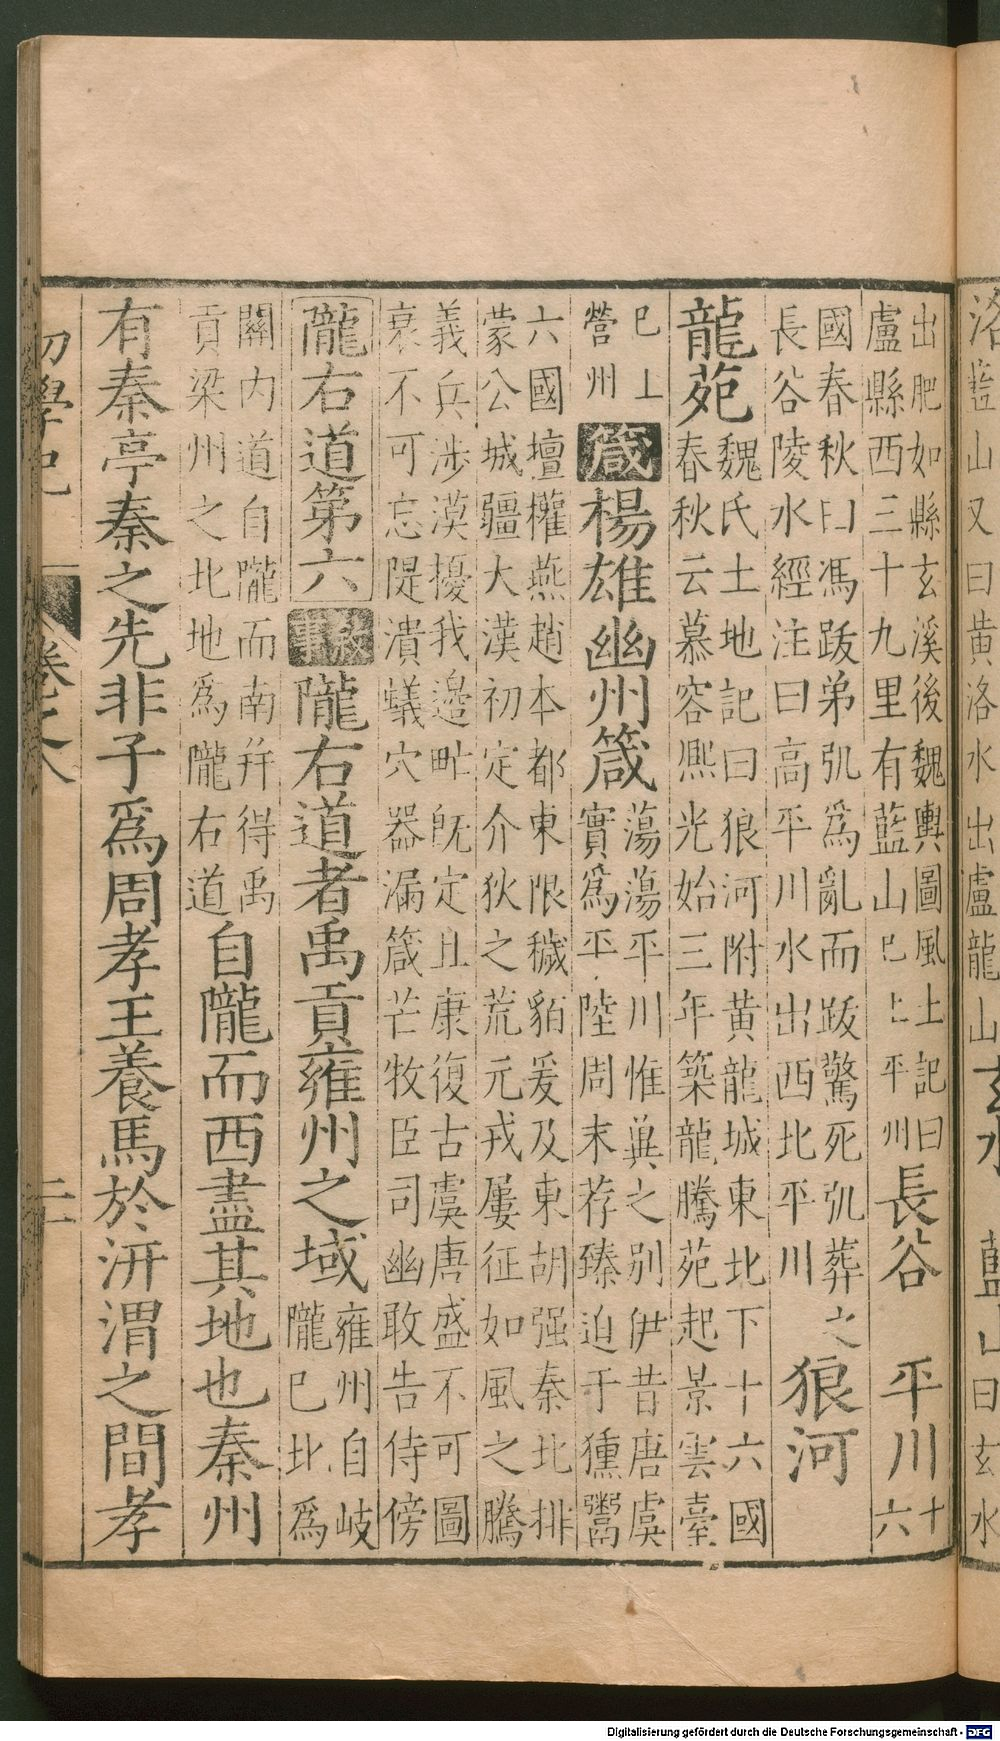 洛
山又曰黄洛水出盧龍山
玄水
曰玄水
出肥如縣玄溪後魏輿圖風土記曰
盧縣西三十九里有藍山巳上平州
長谷 平川
十
六
國春秋曰馮跋弟丮爲亂而跋驚死丮葬之
長谷陵水經注曰高平川水出西北平川
狼河
龍苑
魏氏土地記曰狼河附黄龍城東北下十六國
春秋云慕容熈光始三年築龍騰苑起景雲臺
巳上
營州
箴 楊雄幽州箴
蕩蕩平川惟兾之别伊昔唐虞
實爲平陸周末荐臻迫于獯鬻
六國壇權燕趙本都東限穢貊爰及東胡强秦北排
蒙公城疆大漢初定介狄之荒元戎屢征如風之騰
義兵涉漠擾我邉甿旣定且康復古虞唐盛不可圖
衰不可忘隄潰蟻穴器漏箴芒牧臣司幽敢告侍傍
隴右道第六 敘事 隴右道者禹貢雍州之域
雍州自岐
隴巳北爲
關内道自隴而南并得禹
貢梁州之北地爲隴右道
自隴而西盡其地也秦州
有秦亭秦之先非子爲周孝王養馬於汧渭之間孝
初學記 卷之八
Digitalisierung gefördert durch die Deutsche Forschungsgemeinschaft - DFG